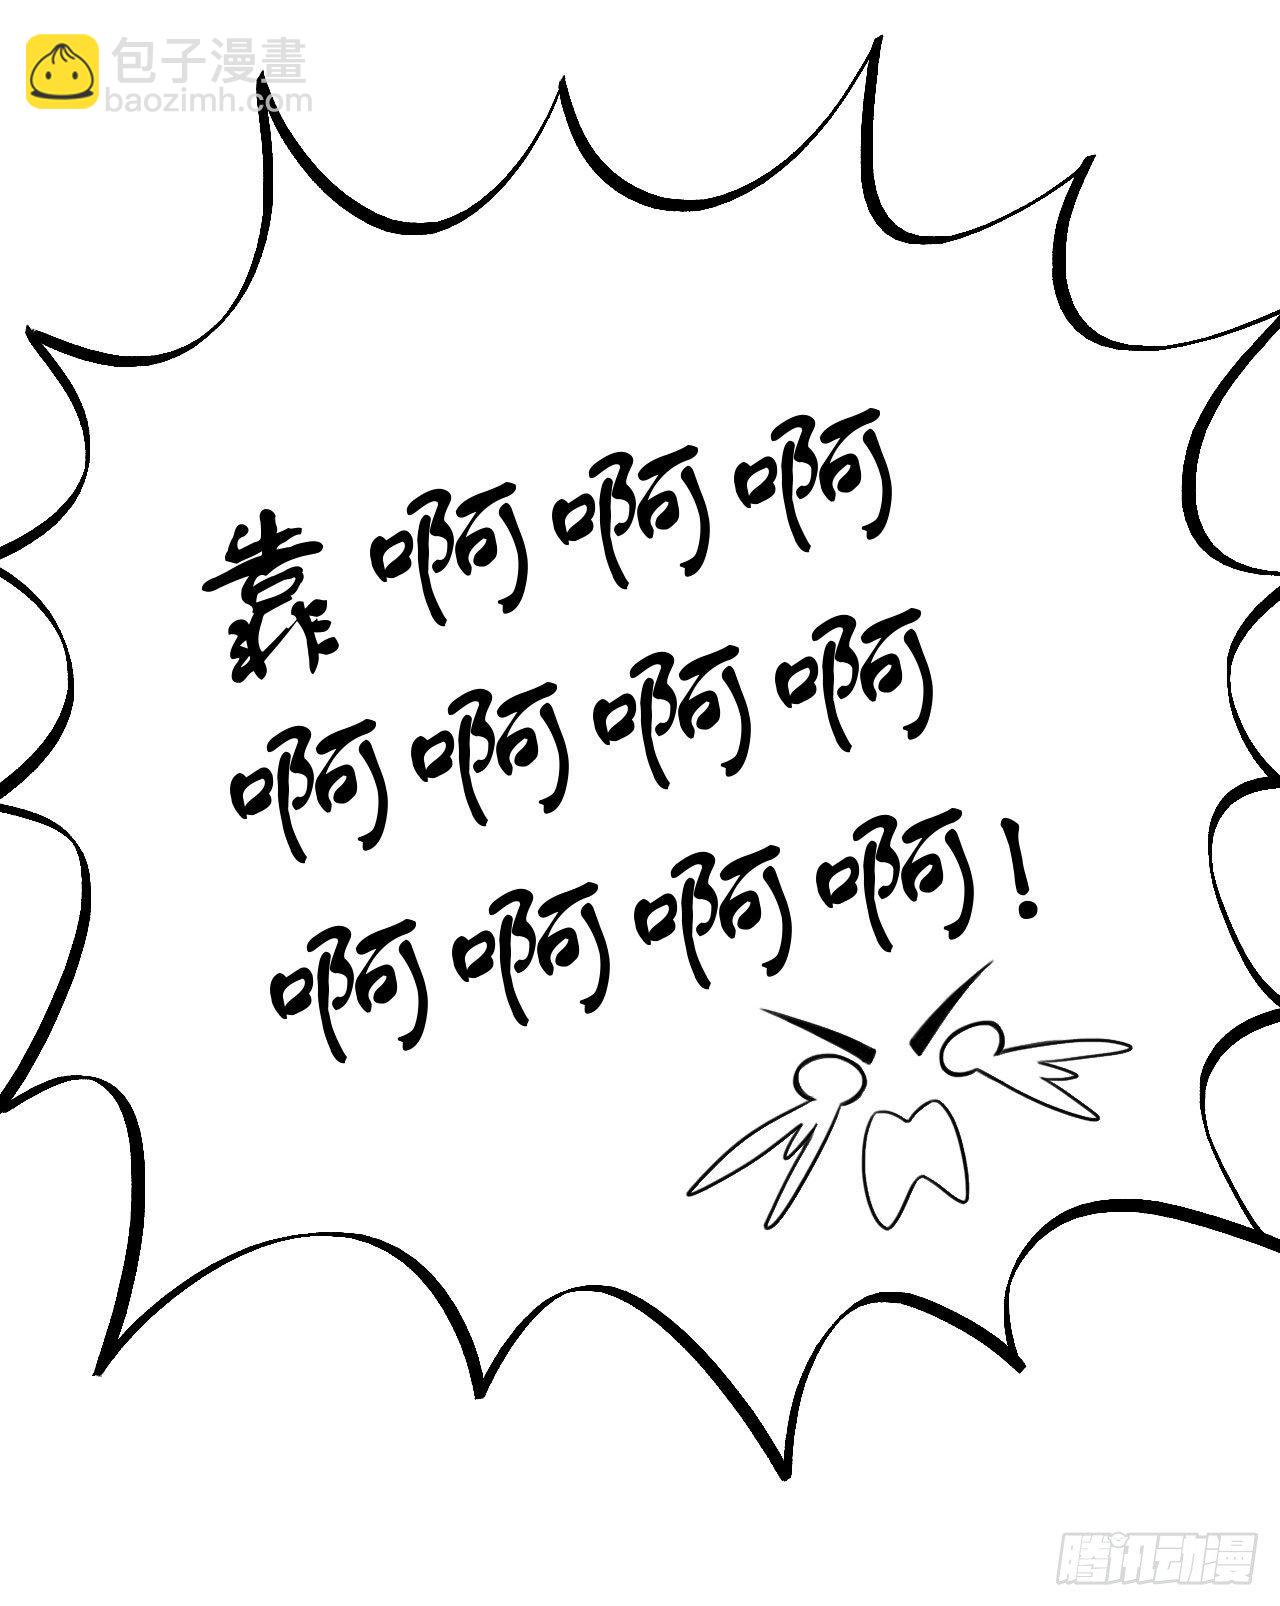 包子漫畫
baozimh.com
靠啊啊啊
啊啊啊啊
啊啊啊啊!
腾讯动漫